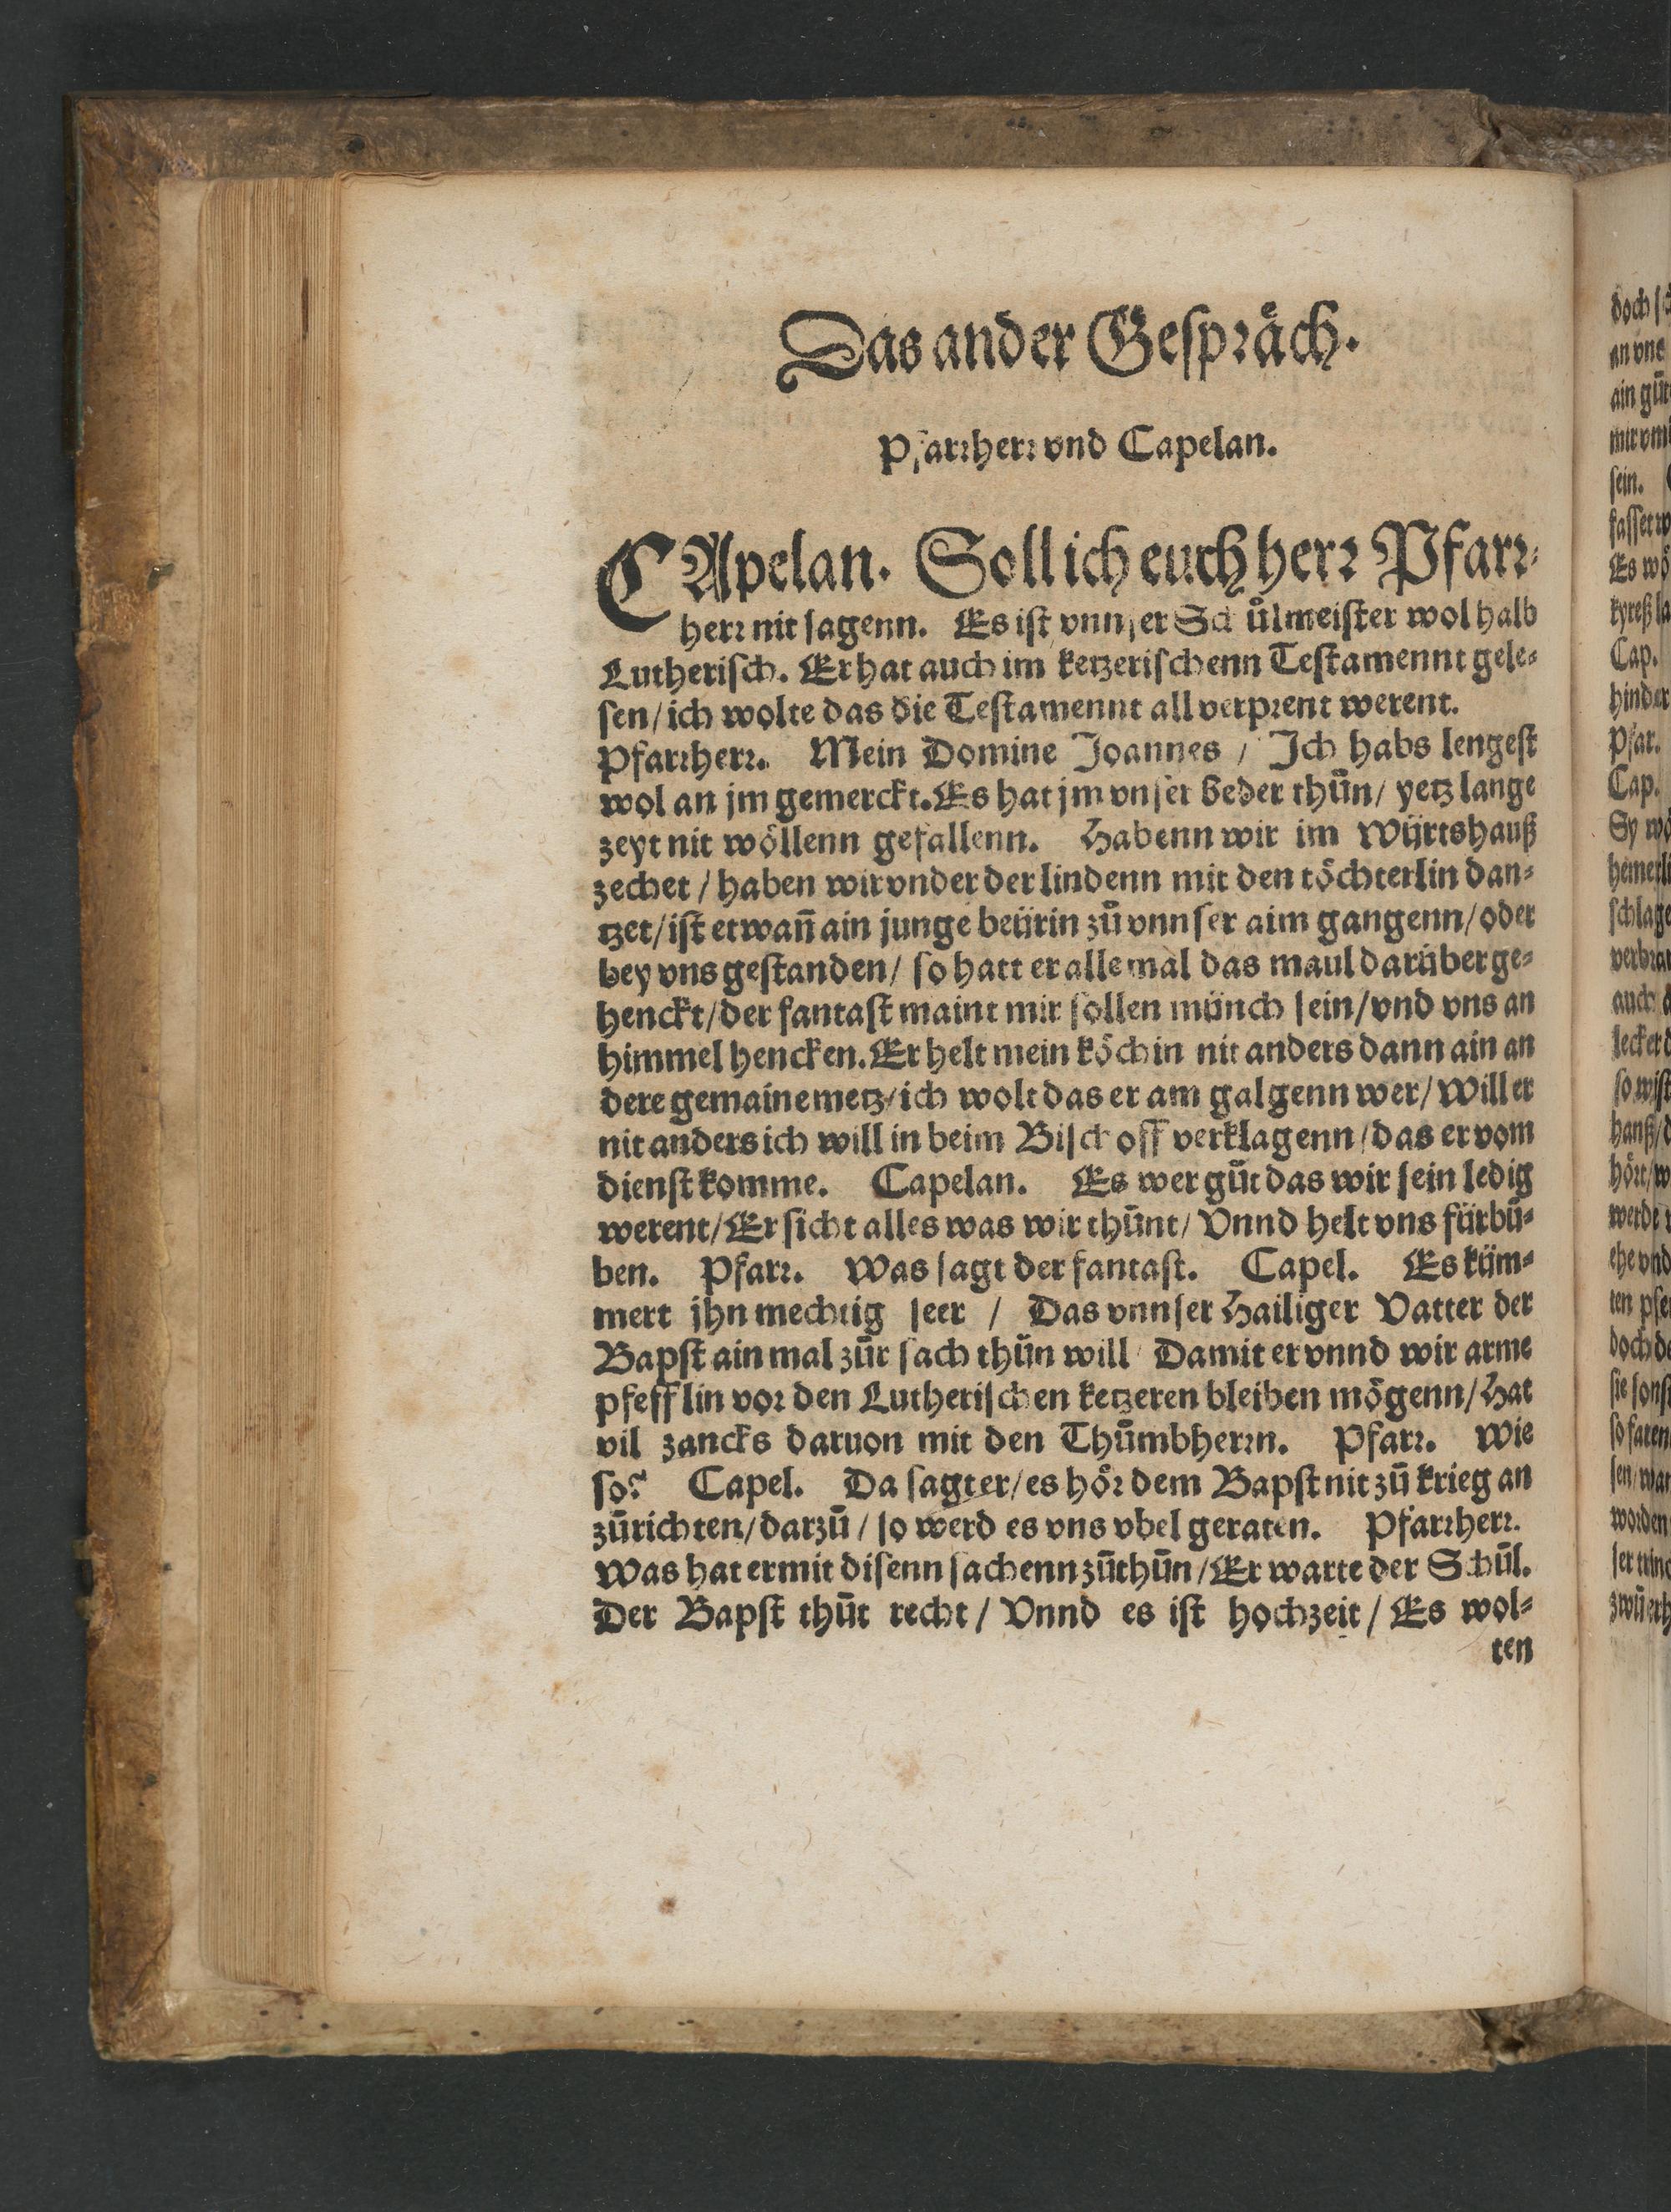 Das ander Gespräch.
Pfarrherr vnd Capelan.
CApelan. Soll ich euch herr Pfarr-
herr nit sagenn. Es ist vnnser Schůlmeister wol halb
Lutherisch. Er hat auch im ketzerischenn Testamennt gele-
sen/ich wolte das die Testamennt all verprent werent.
Pfarrherr. Mein Domine Joannes / Ich habs lengest
wol an jm gemerckt. Es hat jm vnser beder thůn/ yetz lange
zeyt nit wöllenn gefallenn. Habenn wir im Würtshauß
zechet / haben wir vnder der lindenn mit den töchterlin dan-
tzet/ist etwañ ain junge beürin zů vnnser aim gangenn/oder
bey vns gestanden/ so hatt er alle mal das maul darüber ge-
henckt/der fantast maint mir söllen münch sein/vnd vns an
himmel hencken. Er helt mein köchin nit anders dann ain an
dere gemaine metz/ich wolt das er am galgenn wer/Will er
nit anders ich will in beim Bischoff verklagenn/das er vom
dienst komme. Capelan. Es wer gůt das wir sein ledig
werent/Er sicht alles was wir thůnt/Vnnd helt vns für bů-
ben. Pfarr. Was sagt der fantast. Capel. Es küm-
mert jhn mechtig seer / Das vnnser Hailiger Vatter der
Bapst ain mal zůr sach thůn will/ Damit er vnnd wir arme
pfefflin vor den Lutherischen ketzeren bleiben mögenn/Hat
vil zancks daruon mit den Thůmbherrn. Pfarr. Wie
so? Capel. Da sagt er/es hör dem Bapst nit zů krieg an
zůrichten/darzů/so werd es vns vbel geraten. Pfarrherr.
Was hat er mit disenn sachenn zůthůn/Er warte der Schůl.
Der Bapst thůt recht/ Vnnd es ist hochzeit/ Es wol-
ten